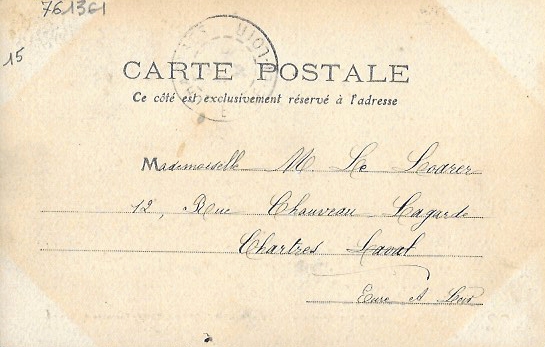 761361
15
CARTE POSTALE
Ce côté est exclusivement réservé à l'adresse
Mademoiselle M. Le
12, Rue Chauveau Lagarde
Chartres Laval
Eure & Loir